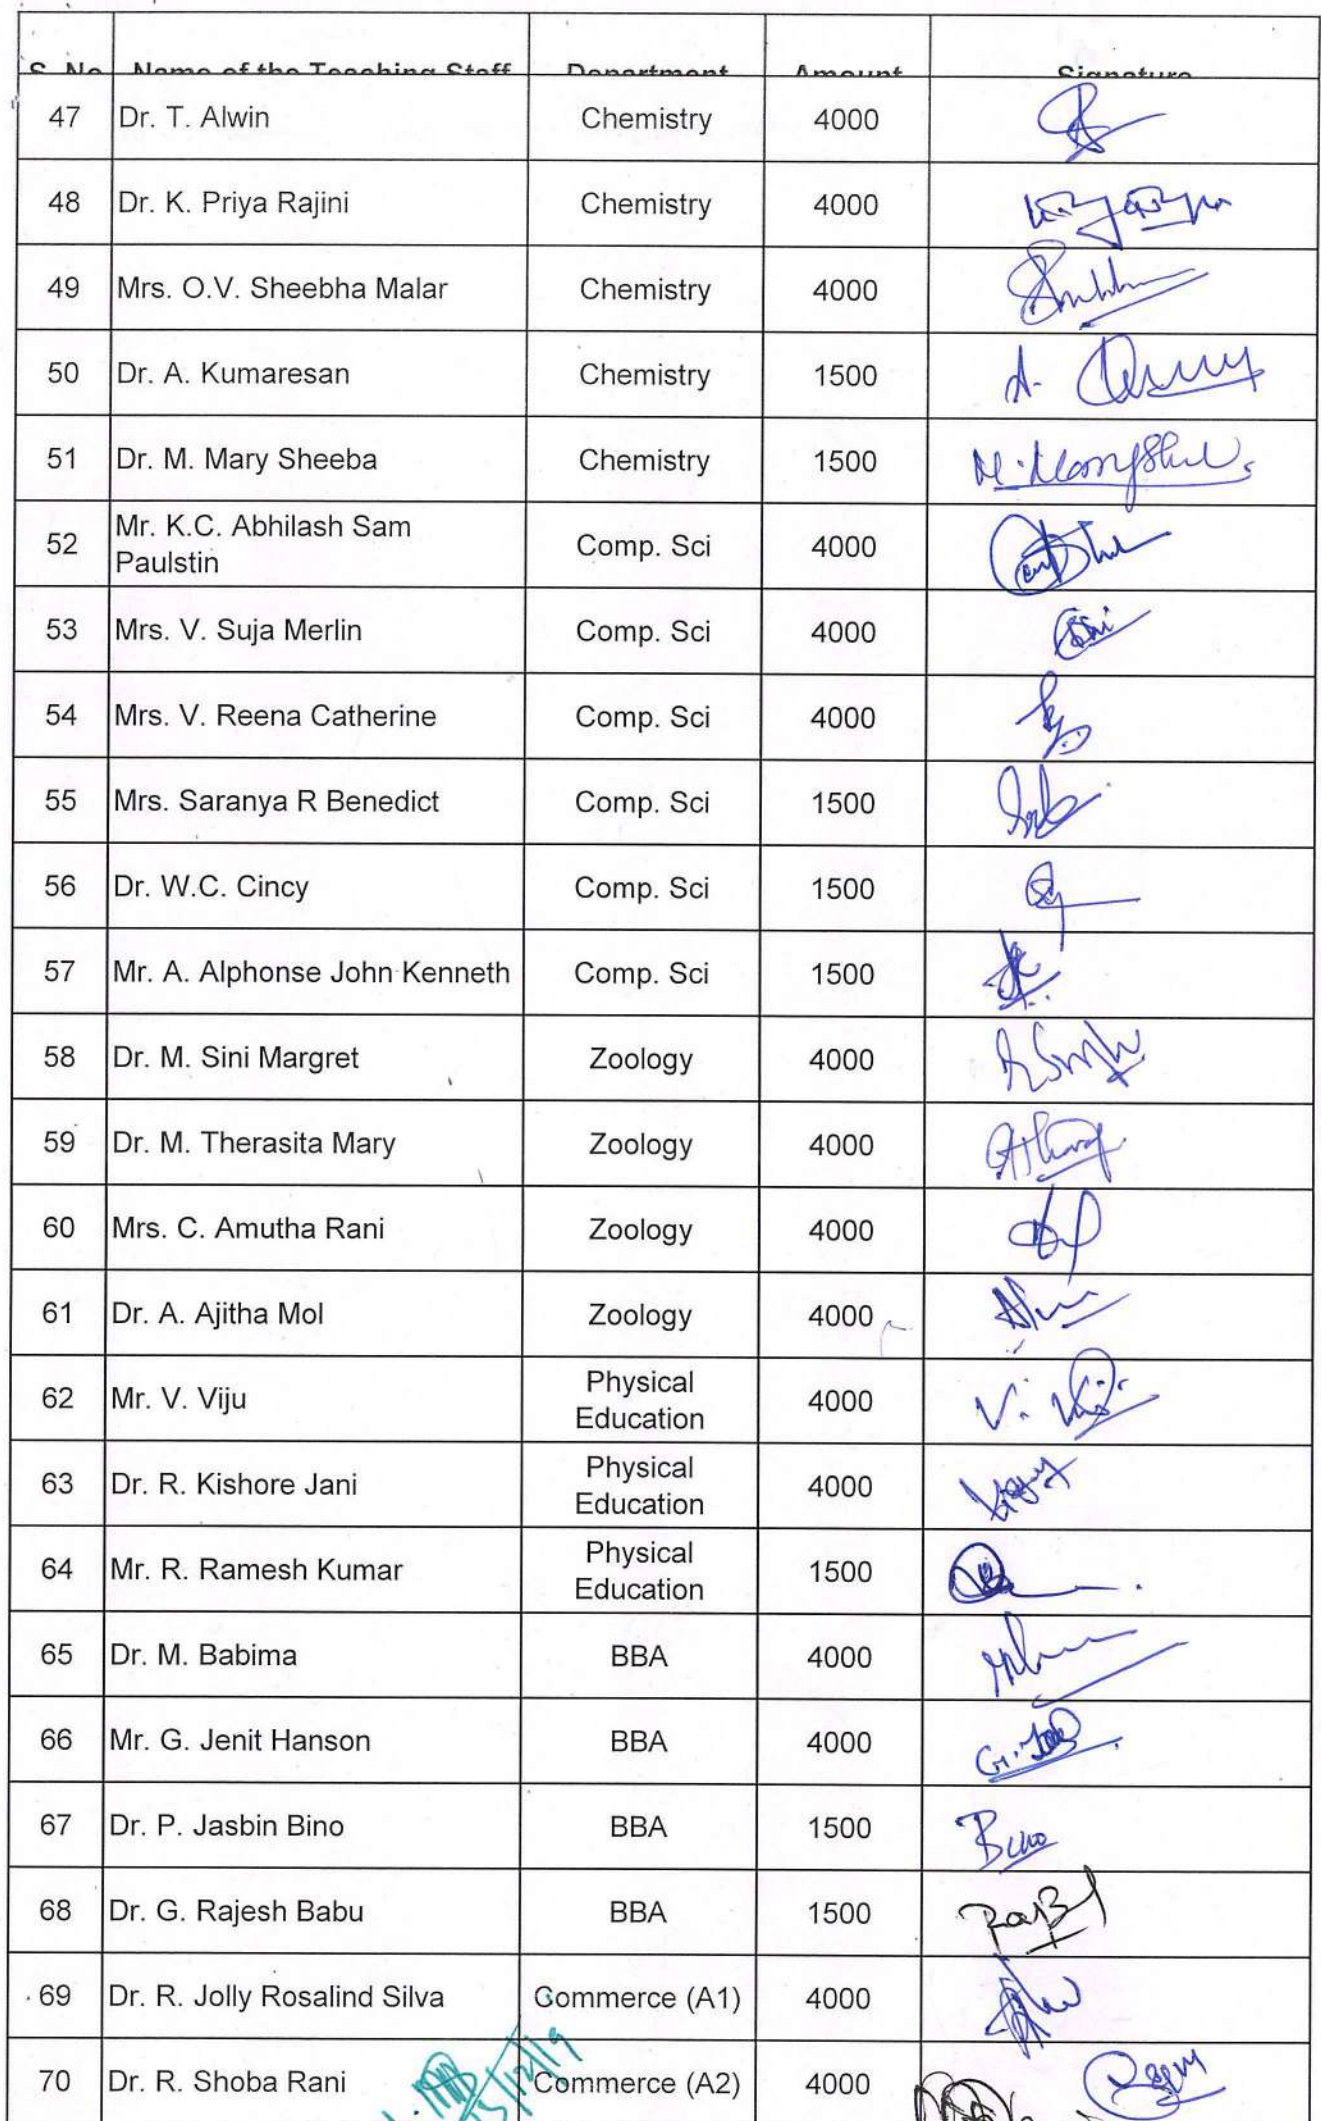 S. No Name of the Teaching Staff Department Amount Signature
47 Dr. T. Alwin Chemistry 4000
48 Dr. K. Priya Rajini Chemistry 4000
49 Mrs. O.V. Sheebha Malar Chemistry 4000
50 Dr. A. Kumaresan Chemistry 1500
51 Dr. M. Mary Sheeba Chemistry 1500
52 Mr. K.C. Abhilash Sam
Paulstin Comp. Sci 4000
53 Mrs. V. Suja Merlin Comp. Sci 4000
54 Mrs. V. Reena Catherine Comp. Sci 4000
55 Mrs. Saranya R Benedict Comp. Sci 1500
56 Dr. W.C. Cincy Comp. Sci 1500
57 Mr. A. Alphonse John Kenneth Comp. Sci 1500
58 Dr. M. Sini Margret Zoology 4000
59 Dr. M. Therasita Mary Zoology 4000
60 Mrs. C. Amutha Rani Zoology 4000
61 Dr. A. Ajitha Mol Zoology 4000
62 Mr. V. Viju Physical
Education 4000
63 Dr. R. Kishore Jani Physical
Education 4000
64 Mr. R. Ramesh Kumar Physical
Education 1500
65 Dr. M. Babima BBA 4000
66 Mr. G. Jenit Hanson BBA 4000
67 Dr. P. Jasbin Bino BBA 1500 Bino
68 Dr. G. Rajesh Babu BBA 1500
69 Dr. R. Jolly Rosalind Silva Commerce (A1) 4000
70 Dr. R. Shoba Rani Commerce (A2) 4000
15/12/19